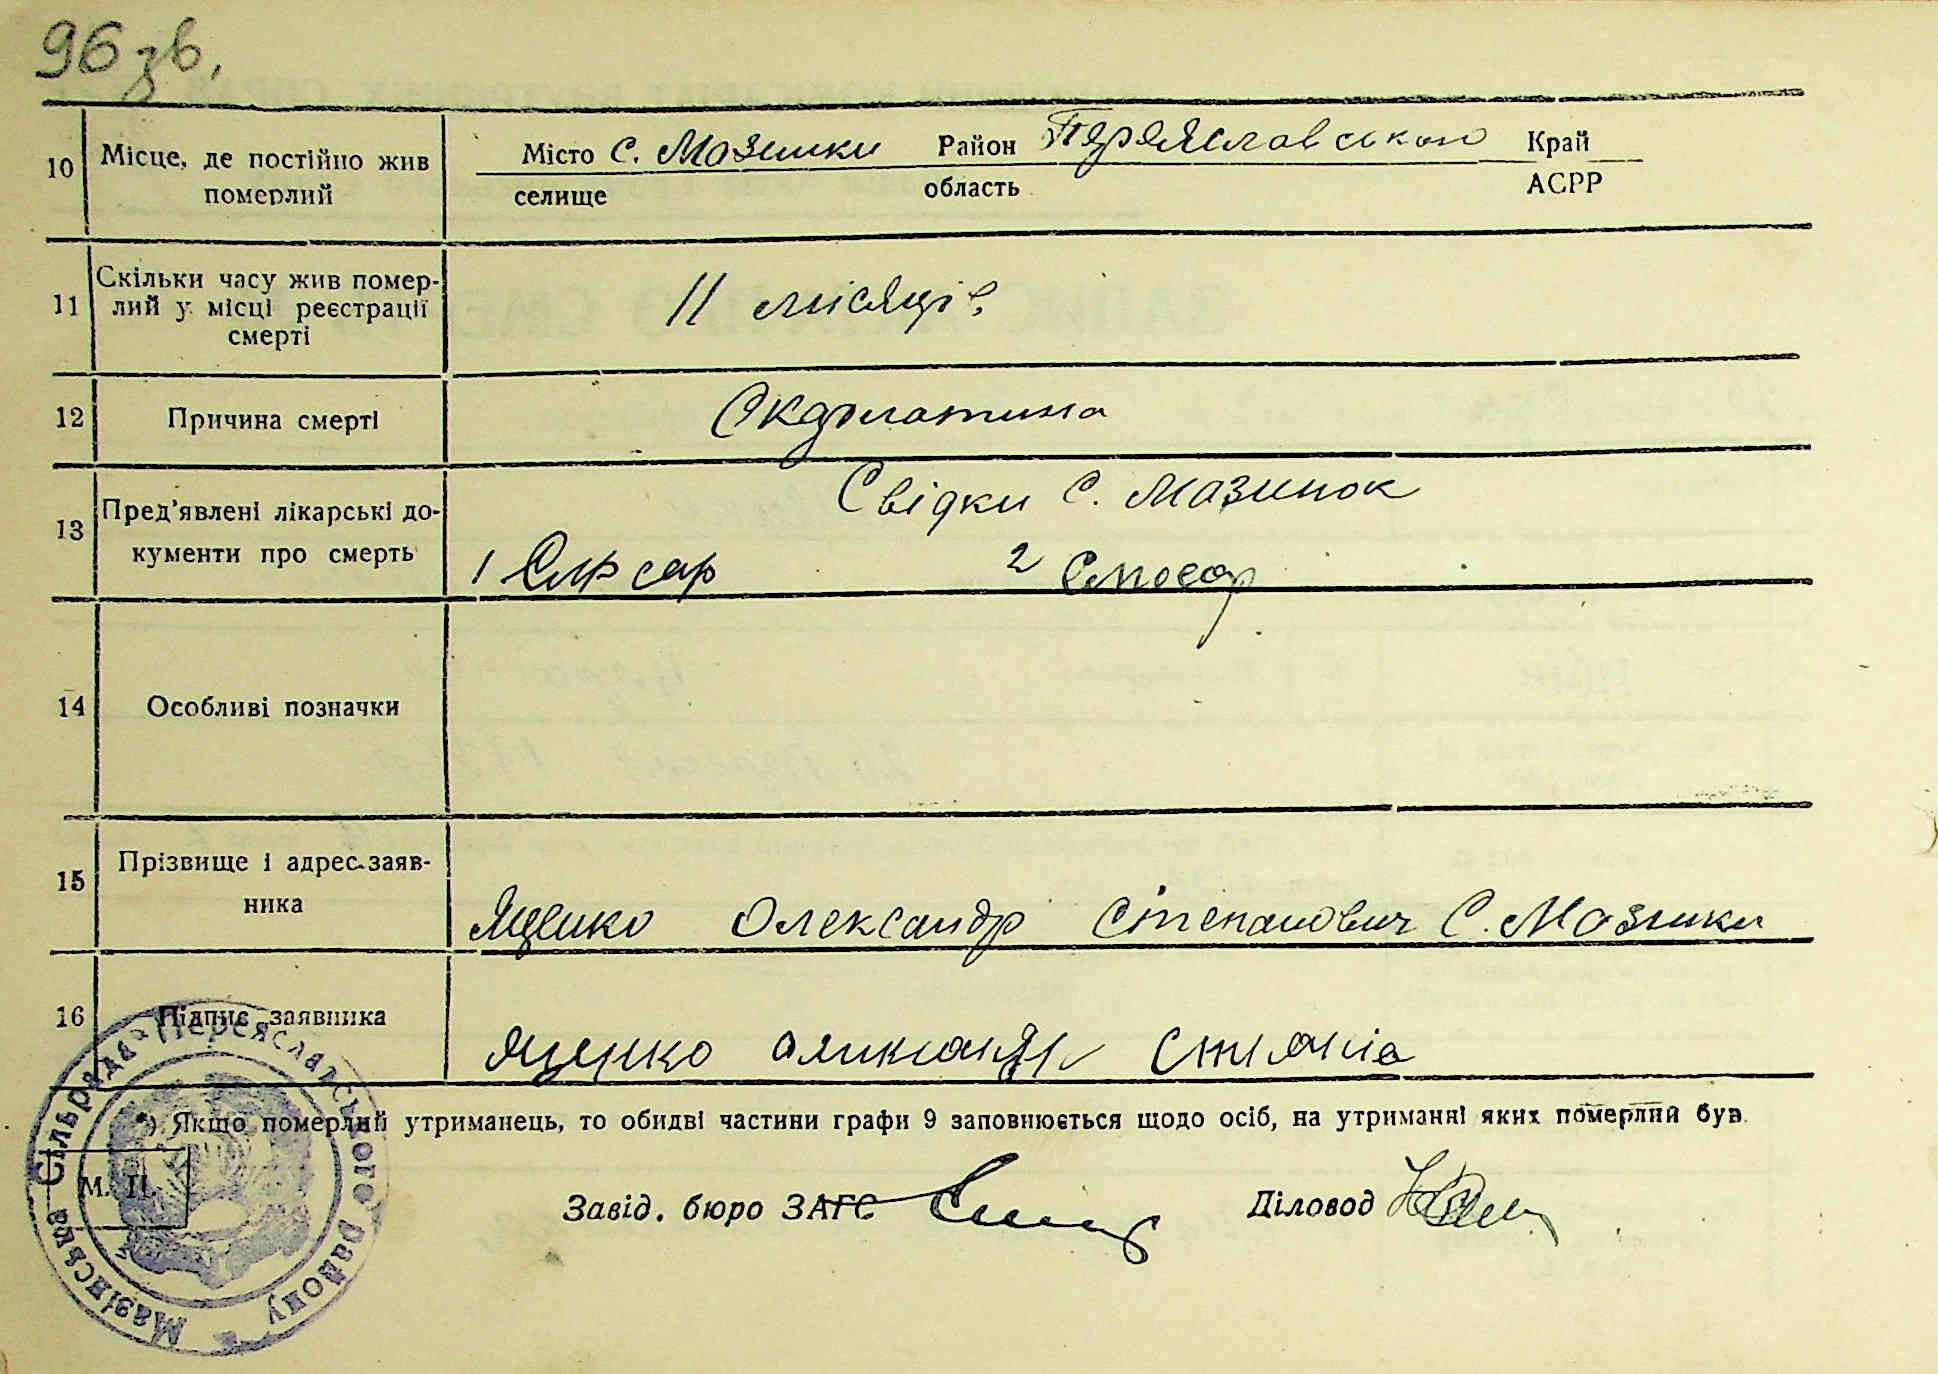 96 зв.
10 Місце, де постійно жив померлий
Місто с. Мазинки Район Переяславського Край
селище область АСРР
11 Скільки часу жив помер-
лий у місці реєстрації
смерті
11 місяців
12 Причина смерті Скарлатина
13 Пред'явлені лікарські до-
кументи про смерть
Свідки с. Мазинок
1 Слюсар 2 Слюсар
14 Особливі позначки
15 Прізвище і адрес заяв-
ника
Яценко Олександр Степанович С. Мазинки
16 Підпис заявника
Яценко
*) Якщо померлий утриманець, то обидві частини графи 9 заповнюється щодо осіб, на утриманні яких померлий був
М. П.
Завід. бюро ЗАГС Діловод
Мазінська Сільрада Переяславського району